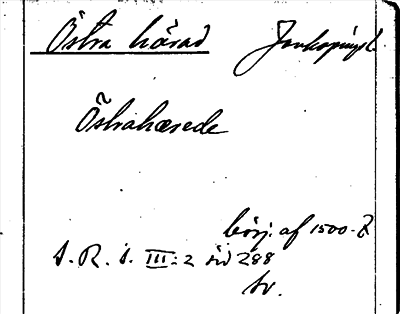 Östra härad Jönköpings l.
Östrahærede
börj. af 1500-t
S. R. s. III:2 sid 288
sv.